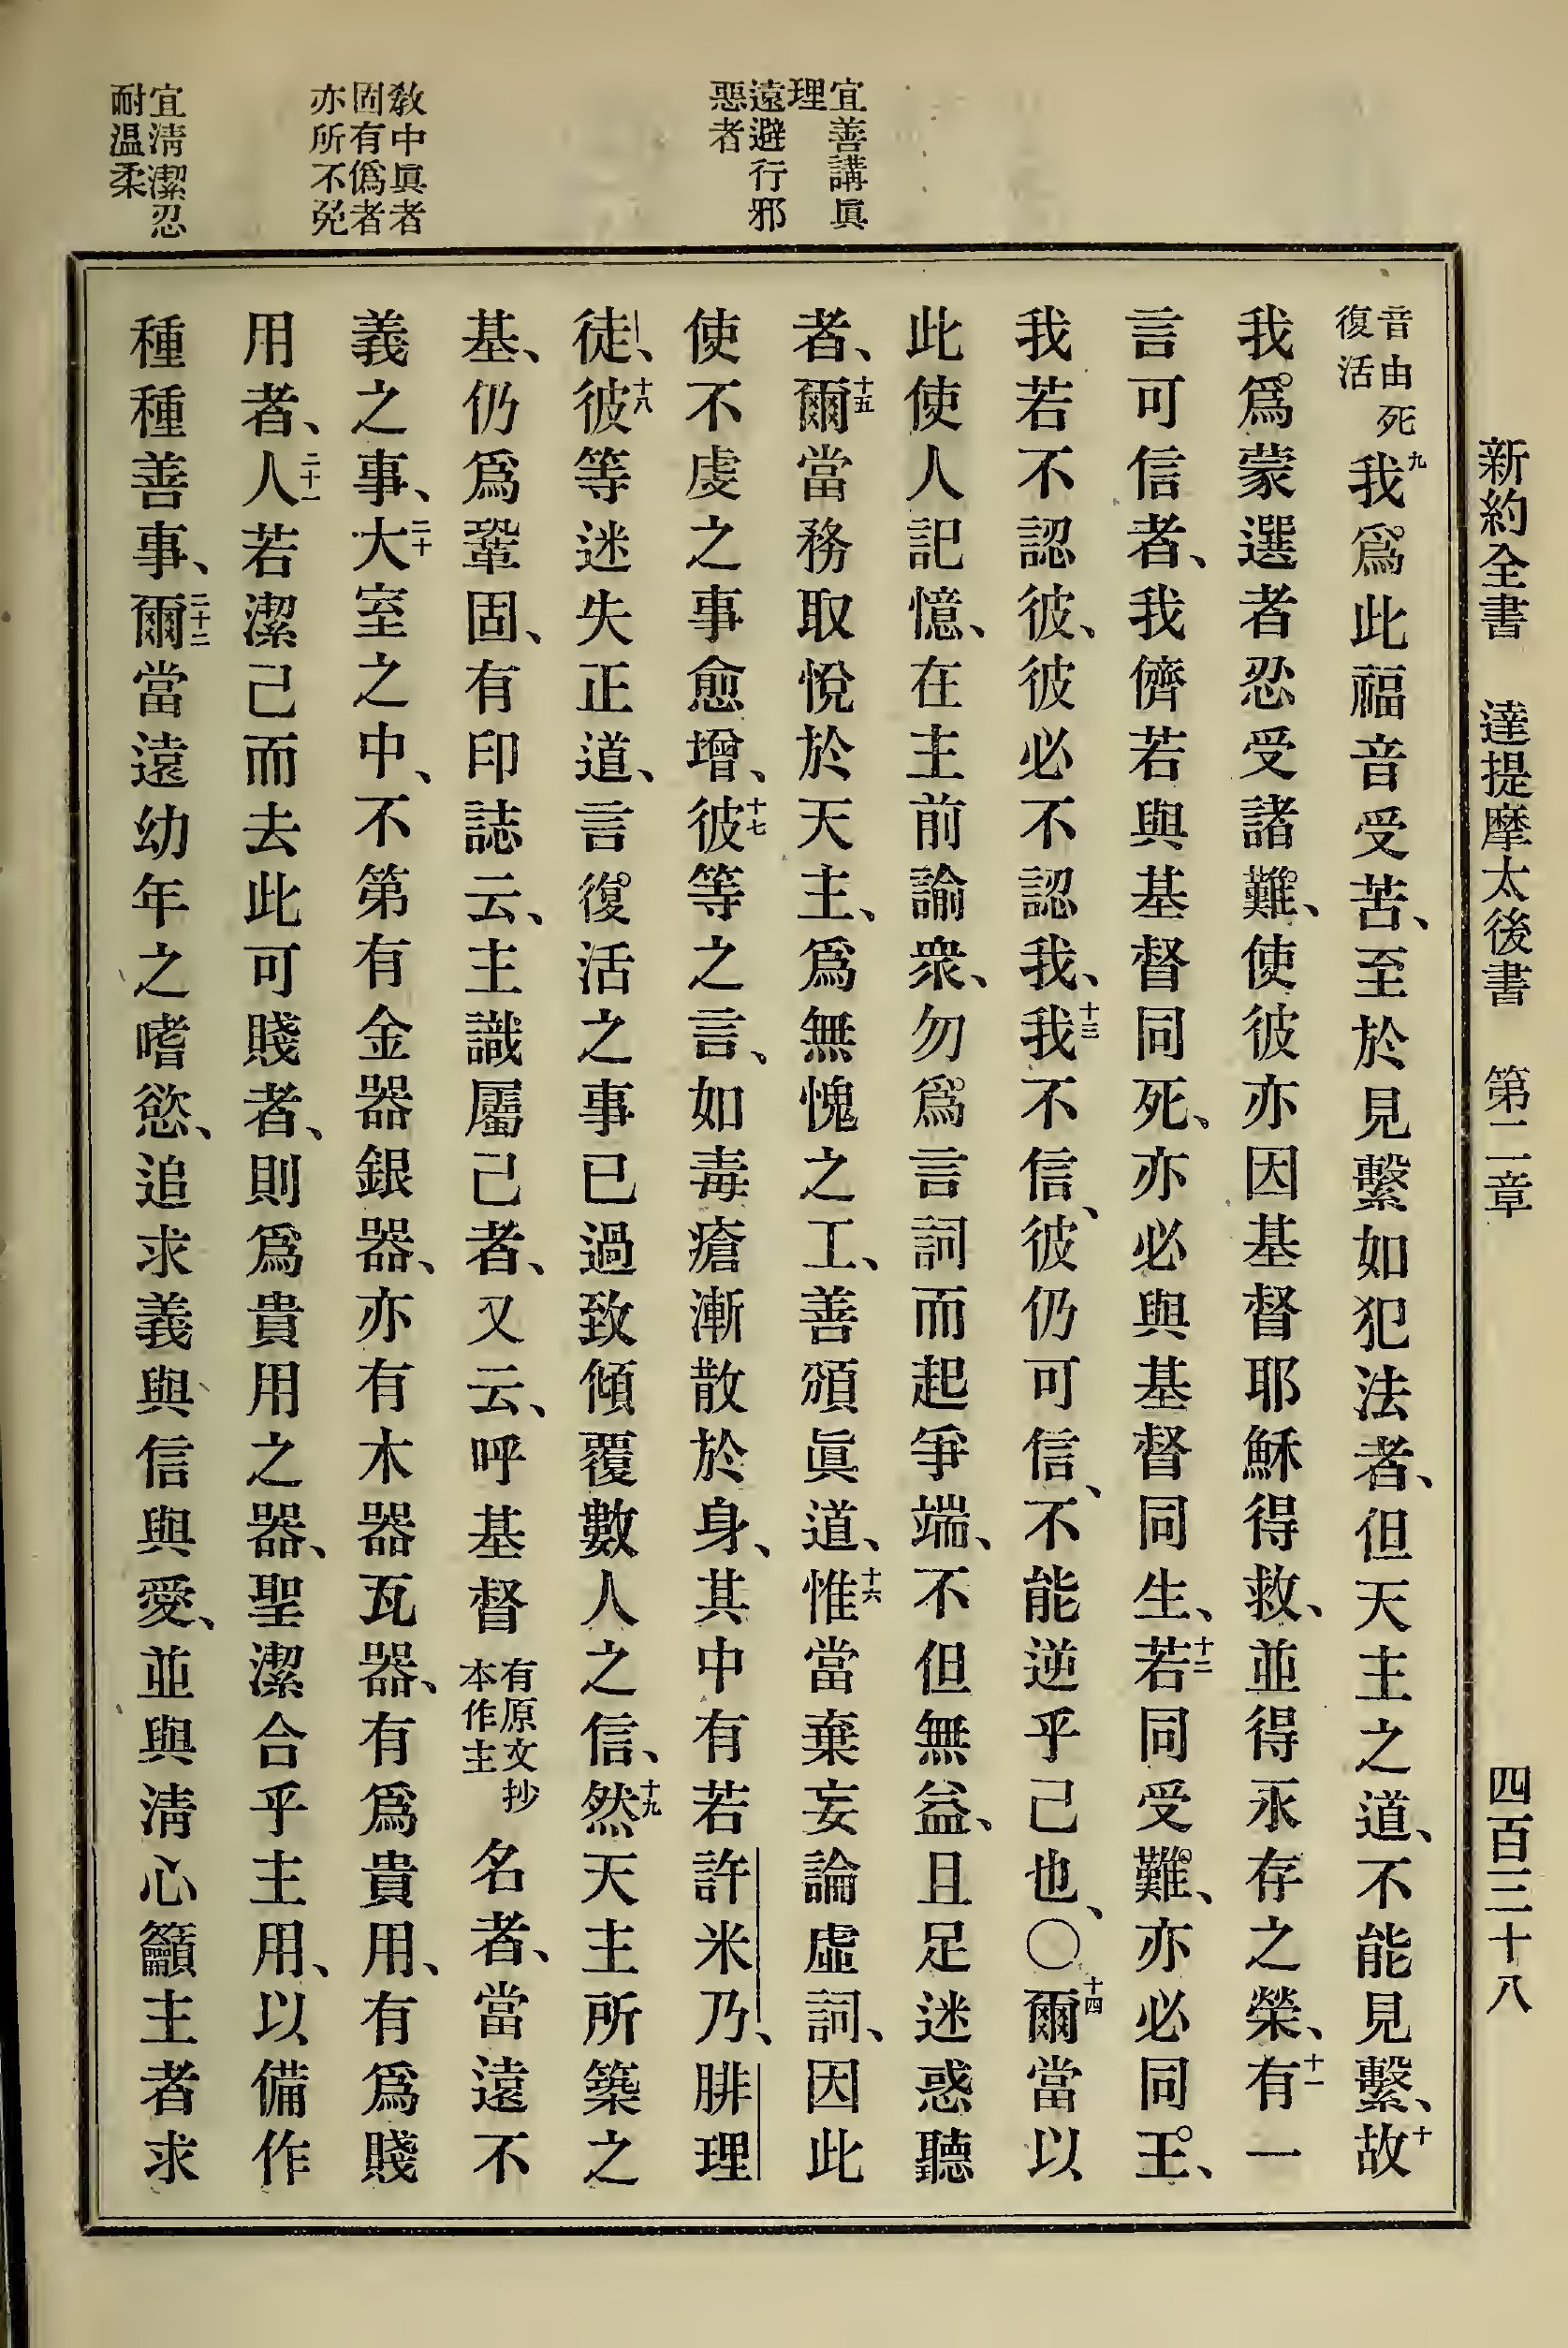 新約全書 達提摩太後書 第二章 四百三十八
宜善講眞
理
遠避行邪
惡者
敎中眞者
固有僞者
亦所不免
宜淸潔忍
耐温柔
音由死
復活
九我爲此福音受苦、至於見繫如犯法者、但天主之道、不能見繫、十故
我爲蒙選者忍受諸難、使彼亦因基督耶穌得救、並得永存之榮、十一有一
言可信者、我儕若與基督同死、亦必與基督同生、十二若同受難、亦必同王、
我若不認彼、彼必不認我、十三我不信、彼仍可信、不能逆乎己也、〇十四爾當以
此使人記憶、在主前諭衆、勿爲言詞而起爭端、不但無益、且足迷惑聽
者、十五爾當務取悅於天主、爲無愧之工、善頒眞道、十六惟當棄妄論虛詞、因此
使不虔之事愈增、十七彼等之言、如毒瘡漸散於身、其中有若許米乃、腓理
徒、十八彼等迷失正道、言復活之事已過致傾覆數人之信、十九然天主所築之
基、仍爲鞏固、有印誌云、主識屬己者、又云、呼基督
有原文抄
本作主
名者、當遠不
義之事、二十大室之中、不第有金器銀器、亦有木器瓦器、有爲貴用、有爲賤
用者、二十一人若潔己而去此可賤者、則爲貴用之器、聖潔合乎主用、以備作
種種善事、二十二爾當遠幼年之嗜慾、追求義與信與愛、並與淸心籲主者求